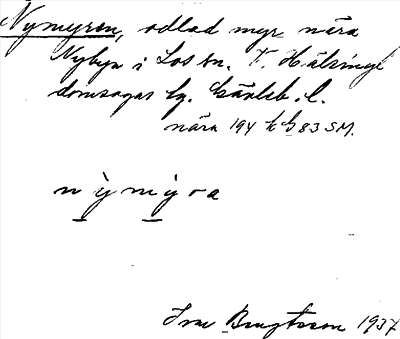 Nymyren, odlad myr nära
Nybyn i Los sn. V. Hälsingl
domsagas tg. Gävleb. l.
nära 194 h b 83 SM.
n ỳ m ỳ r a
Ivar Bengtsson 1937